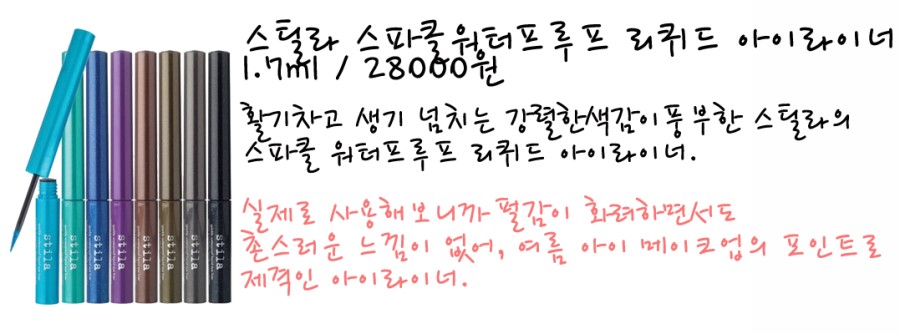 스틸라 스파클워터프루프 리퀴드 아이라이너
1.7ml / 28000원
활기차고 생기 넘치는 강렬한색감이풍부한 스틸라의
스파클 워터프루프 리퀴드 아이라이너.
실제로 사용해보니까 펄감이 화려하면서도
촌스러운 느낌이 없어, 여름 아이 메이크업의 포인트로
제격인 아이라이너.
stila
stila
stila
stila
stila
stila
stila
stila